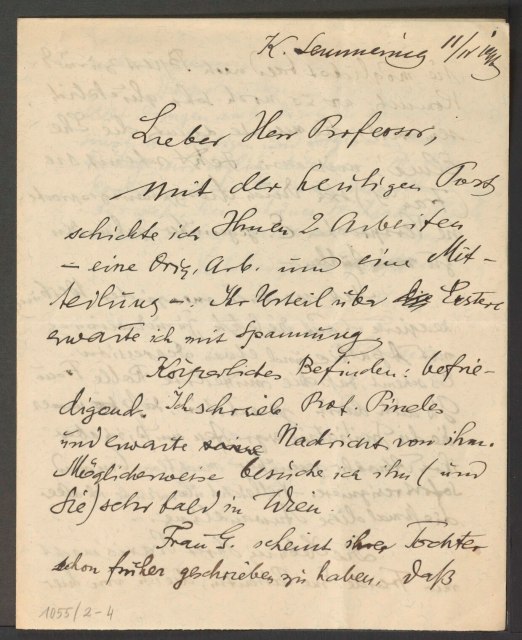 K. Semmering 11/IV
Lieber Herr Professor,
Mit der heutigen Post
schickte ich Ihnen 2 Arbeiten
– eine Orig. Arb. und eine Mit-
teilung –. Ihr Urteil über die Erstere
erwarte ich mit Spannung
Körperliches Befinden: befrie-
digend. Ich schrieb Prof. Pineles
und erwarte seine Nachricht von ihm.
Möglicherweise besuche ich ihn (und
Sie) sehr bald in Wien.
Frau G. scheint ihrer Tochter
schon früher geschrieben zu haben, daß
1055/2-4